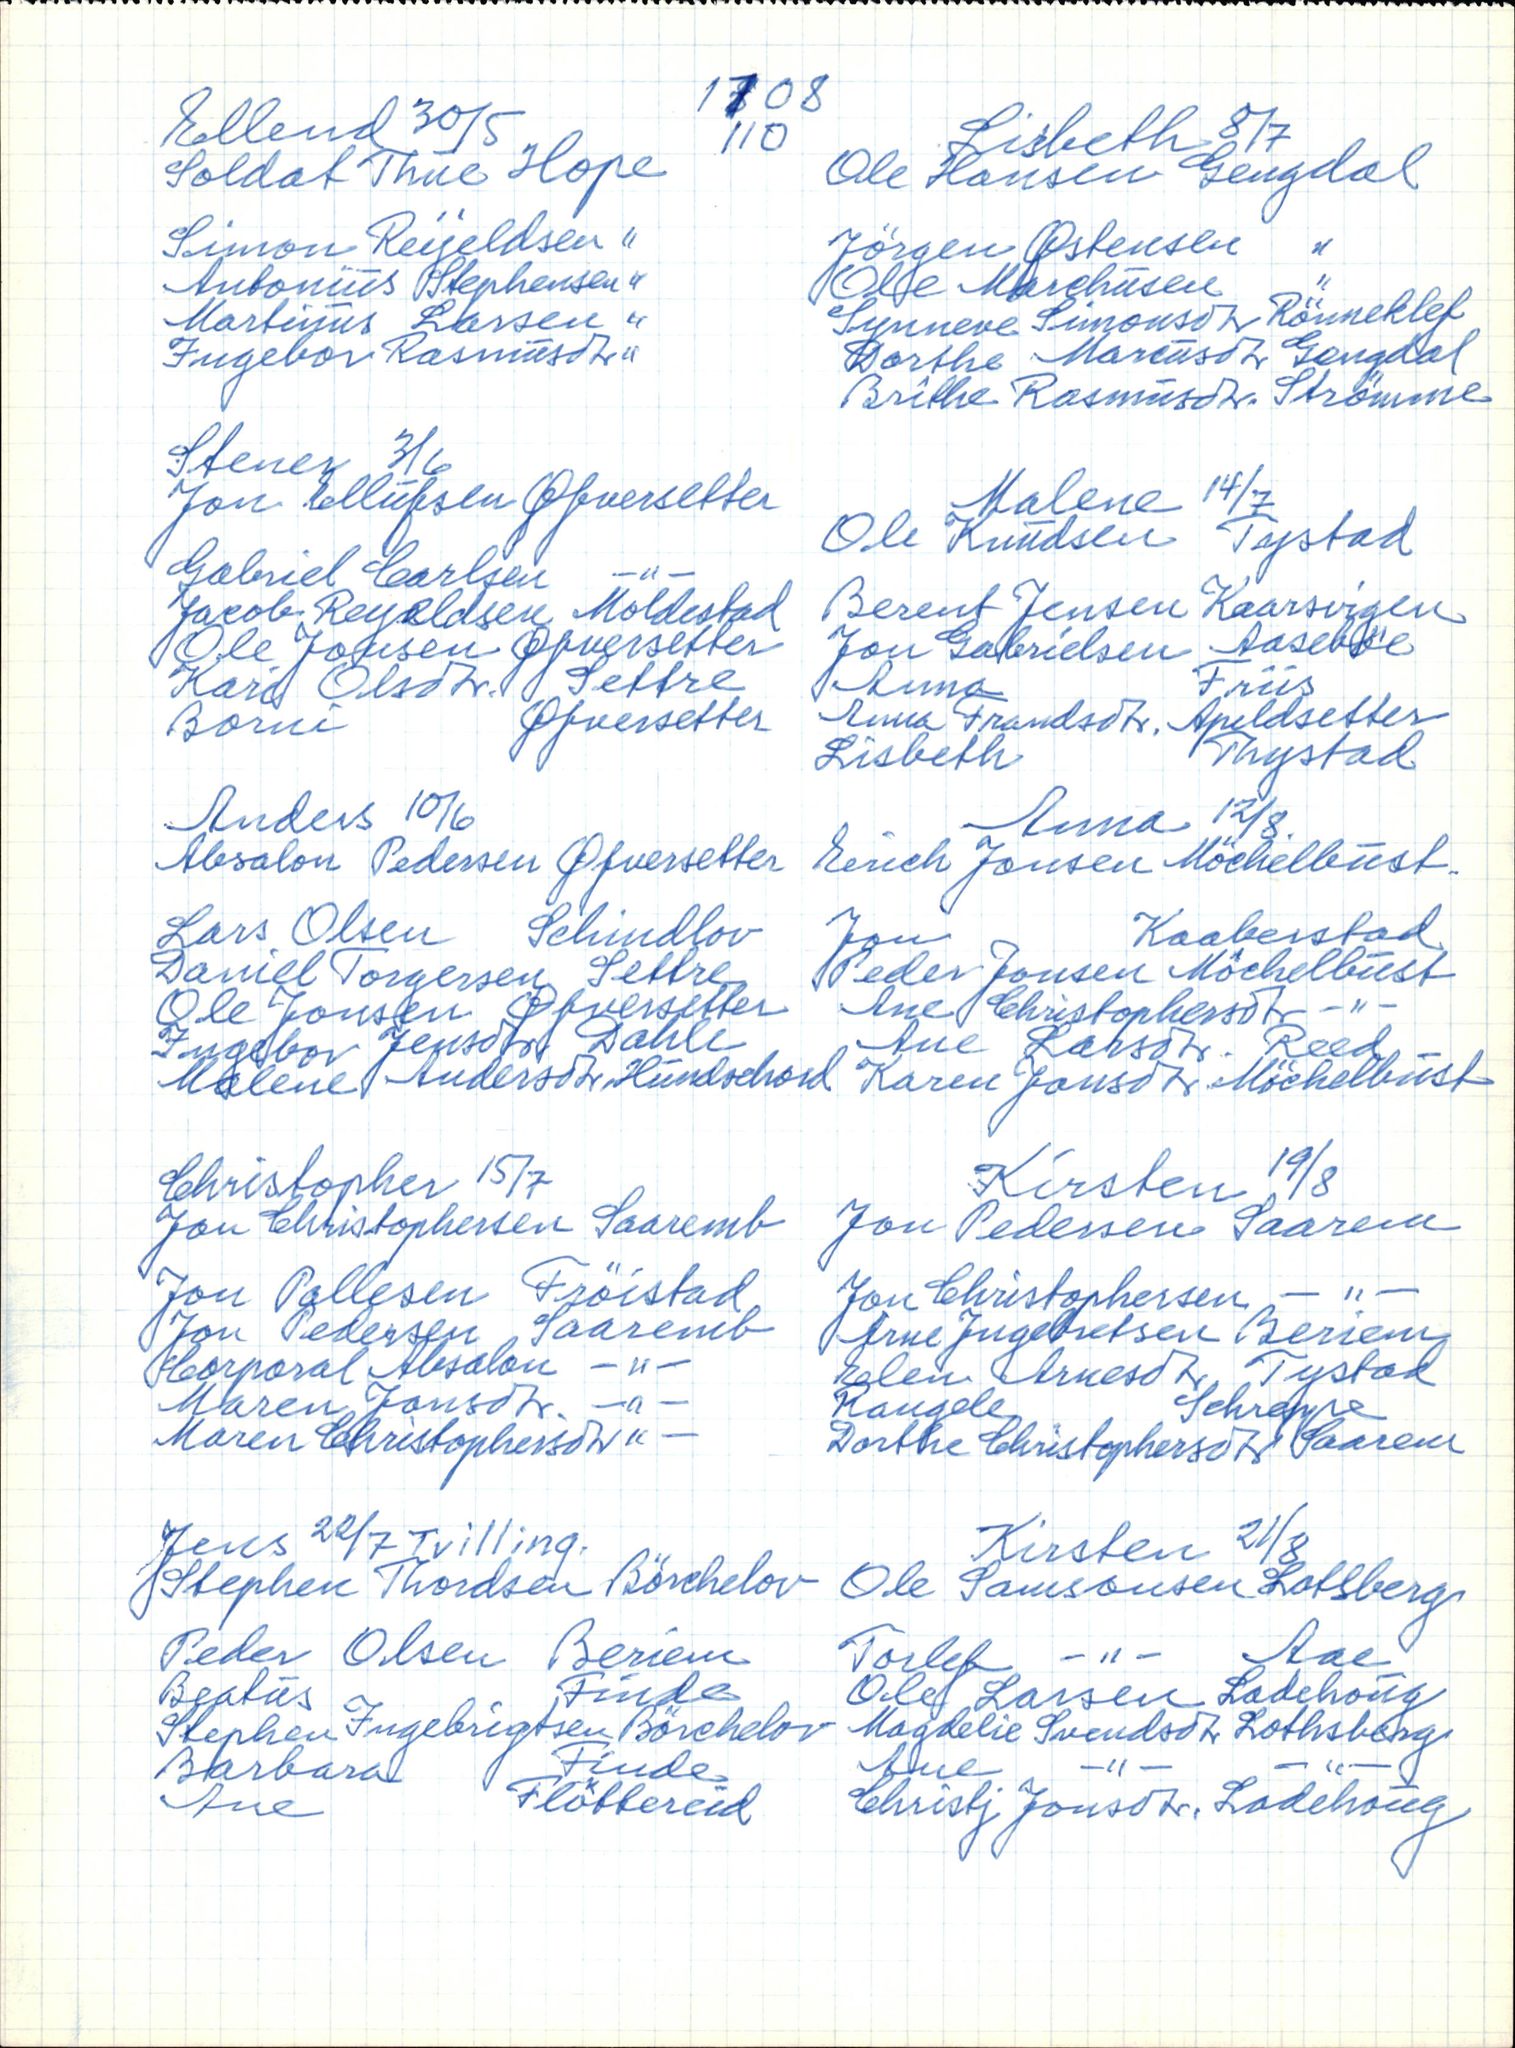 1708
110
Ellend 30/5
Soldat Thue Hope
Simon Reijeldsen "
Antonius Stephensen "
Martinus Larsen "
Ingebor Rasmusdtr "
Stener 3/6
Jon Ellufsen Øfversetter
Gabriel Carlsen -"-
Jacob Reyeldsen Moldestad
Ole Jonsen Øfversetter
Kari Olsdtr. Settre
Borni Øfversetter
Anders 10/6
Absalon Pedersen Øfversetter
Lars Olsen Schindlov
Daniel Torgersen Settre
Ole Jonsen Øfversetter
Ingebor Jensdtr Dahle
Malene Andersdtr.
Christopher 15/7
Jon Christophersen Saaremb
Jon Pallesen Fröistad
Jon Pedersen Saaremb
Corporal Absalon -"-
Maren Jonsdtr. -"-
Maren Christophersdtr "-
Jens 22/7 Tvilling.
Stephen Thordsen Börchelov
Peder Olsen Beriem
Beatus Finde
Stephen Ingebrigtsen Börchelov
Barbara Finde
Ane Flöttereid
Lisbeth 8/7
Ole Hansen Gengdal
Jörgen Østensen "
Ole Marchusen "
Synneve Simonsdtr Rönneklef
Dorthe Marcusdtr Gengdal
Brithe Rasmusdtr. Strömme
Malene 14/7
Ole Knudsen Tystad
Berent Jensen Kaarsvigen
Jon Gabrielsen Aaseböe
Anna Friis
Anna Frandsdtr. Apeldsetter
Lisbeth Thystad
Anna 12/8.
Erich Jonsen Möchelbust.
Jon Kaaberstad
Peder Jonsen Möchelbust
Ane Christophersdtr -"-
Ane Larsdtr. Reed
Karen Jonsdtr. Möchelbust
Kirsten 19/8
Jon Pedersen Saarem
Jon Christophersen -"-
Arne Ingebretsen Beriem
Elen Arnesdtr Tystad
Rangele Schreppe
Dorthe Christophersdtr Saarem
Kirsten 21/8
Ole Samsonsen Lotsberg
Torlef -"- Aae
Ole Larsen Ladehoug
Magdelie Svendsdtr Lothsberg
Ane -"- -"-
Christj Jonsdtr. Ladehoug